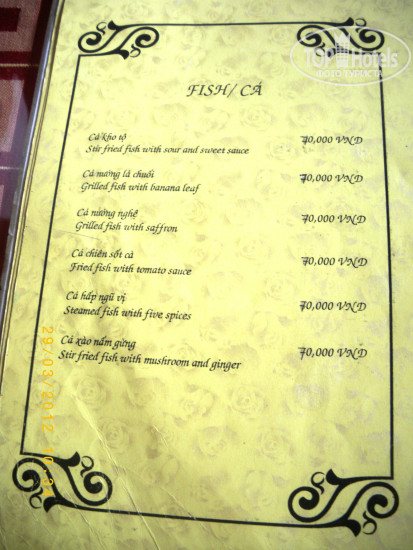 TOP Hotels
FISH/ CÁ
Cá kho tộ
Stir fried fish with sour and sweet sauce
70,000 VND
Cá nướng lá chuối
Grilled fish with banana leaf
70,000 VND
Cá nướng nghệ
Grilled fish with saffron
70,000 VND
Cá chiên sốt cà
Fried fish with tomato sauce
70,000 VND
Cá hấp ngũ vị
Steamed fish with five spices
70,000 VND
Cá xào nấm gừng
Stir fried fish with mushroom and ginger
70,000 VND
29/03/2012